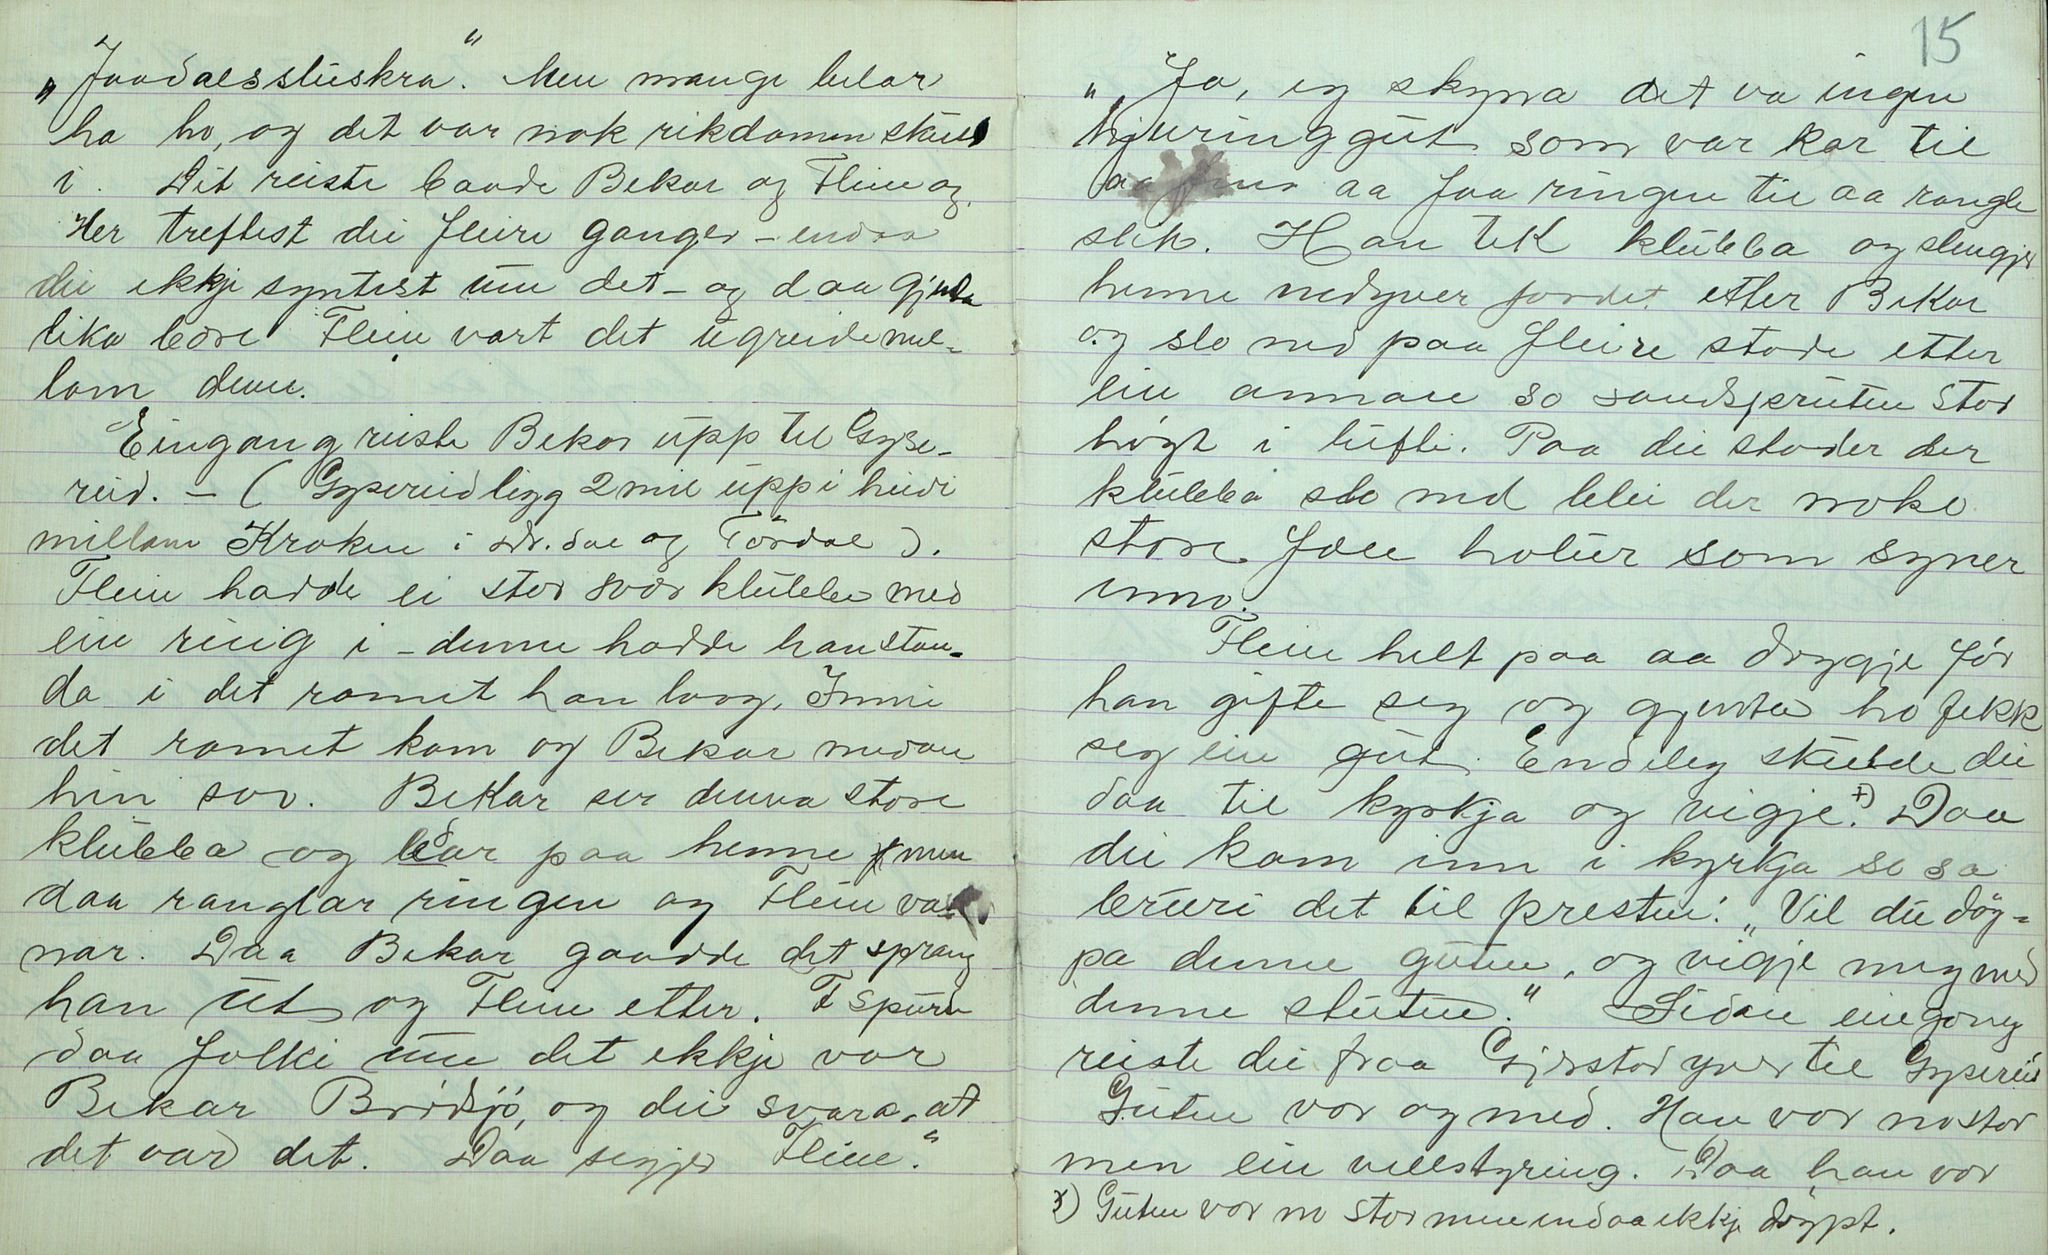 „Jaadalssluskra". Men mange belar
ha ho, og det var nok rikdomen skuld
i. Dit reiste baade Bekar og Flein og.
Her treftest dei fleire ganger - endaa
dei ikkje syntest um det - og daa gjenta
lika bære Flein vart det ugreide mil-
lom deim.
Eingang reiste Bekar upp til Gyse-
reid. - (Gysereid ligg 2 mil upp i heidi
millom Kroken i Dr.dal og Tørdal).
Flein hadde ei stor svær klubba med
ein ring i - denne hadde han stan-
da i det romet han laag. Inni
det romet kom og Bekar medan
hin sov. Bekar ser denna store
klubba og lear paa henne men
daa ranglar ringen og Flein vak-
nar. Daa Bekar gaadde det sprang
han ut og Flein etter. F spurde
daa folki um det ikkje var
Bekar Brødsjø, og dei svara, at
det var det. Daa segjer Flein:"
15
„Ja, eg skyna det va ingen
hjuringgut som var kar til
aa faa ringen til aa rangle
slik. Han tek klubba og slengjer
henne nedyver jordet etter Bekar
og slo ned paa fleire stade etter
ein annan so sandspruten stod
høgt i lufti. Paa dei stader der
klubba slo ned blei der noko
store jolu holur som syner
enno.
Flein helt paa aa drygje før
han gifte seg og gjenta ho fekk
seg ein gut. Endeleg skulde dei
daa til kyrkja og vigje.x) Daa
dei kom inn i kyrkja so sa
bruri det til presten: „Vil du døy-
pa denne guten, og vigje meg med
denne stuten." Sidan eingong
reiste dei fraa Gjerstad yver til Gysereid
Guten var og med. Han var no stor
men ein villstyring. Daa han var
x) Guten var no stor men endaa ikkje døypt.